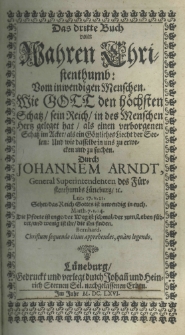 Das dritte Buch
vom
Wahren Chri-
stenthumb:
Vom inwendigen Menschen.
Wie GOTT den höchsten
Schatz / sein Reich / in des Menschen
Hertz geleget hat / als einen verborgenen
Schatz im Acker: als ein Göttliches Liecht der See-
len: Und wie dasselbe in uns zu erwe-
cken und zu suchen.
Durch
JOHANNEM ARNDT,
General Superintendenten des Für-
stenthumbs Lüneburg / etc.
Luc. 17. v. 21.
Sehet das Reich Gottes ist inwendig in euch.
Matth. 7. v. 14.
Die Pforte ist enge / der Weg ist schmal / der zum Leben füh-
ret / und wenig ist ihr / die ihn finden.
Bernhard:
Christum sequendo citius apprehendes, quam legendo.
Lüneburg /
Gedruckt und verlegt durch Johann und Hein-
rich Sternen Sel. nachgelassenen Erben.
Im Jahr M. DC. LXVI.